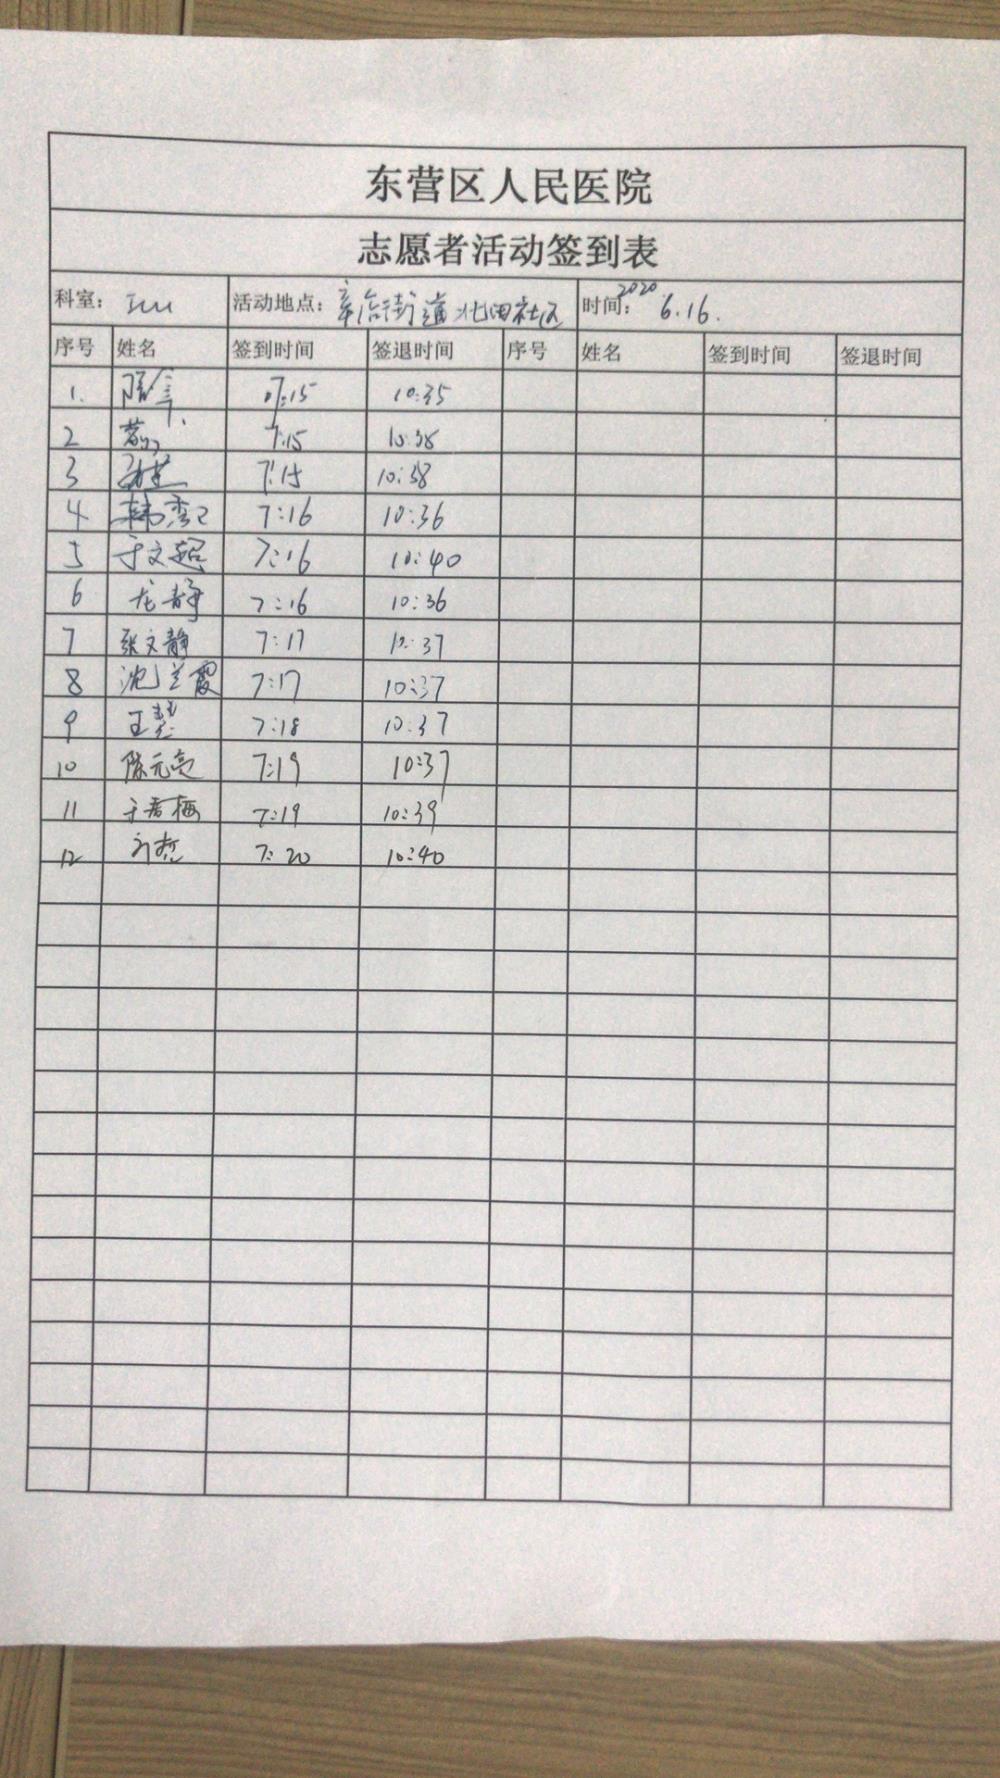 东营区人民医院
志愿者活动签到表
科室: ICU 活动地点: 辛店街道北田社区 时间: 2020 6.16.
序号 姓名 签到时间 签退时间 序号 姓名 签到时间 签退时间
1. 07:15 10:35
2 7:15 10:38
3 7:15 10:38
4 7:16 10:36
5 于文超 7:16 10:40
6 龙静 7:16 10:36
7 张文静 7:17 10:37
8 沈兰霞 7:17 10:37
9 王慧 7:18 10:37
10 陈元亮 7:19 10:37
11 于春梅 7:19 10:39
12 7:20 10:40